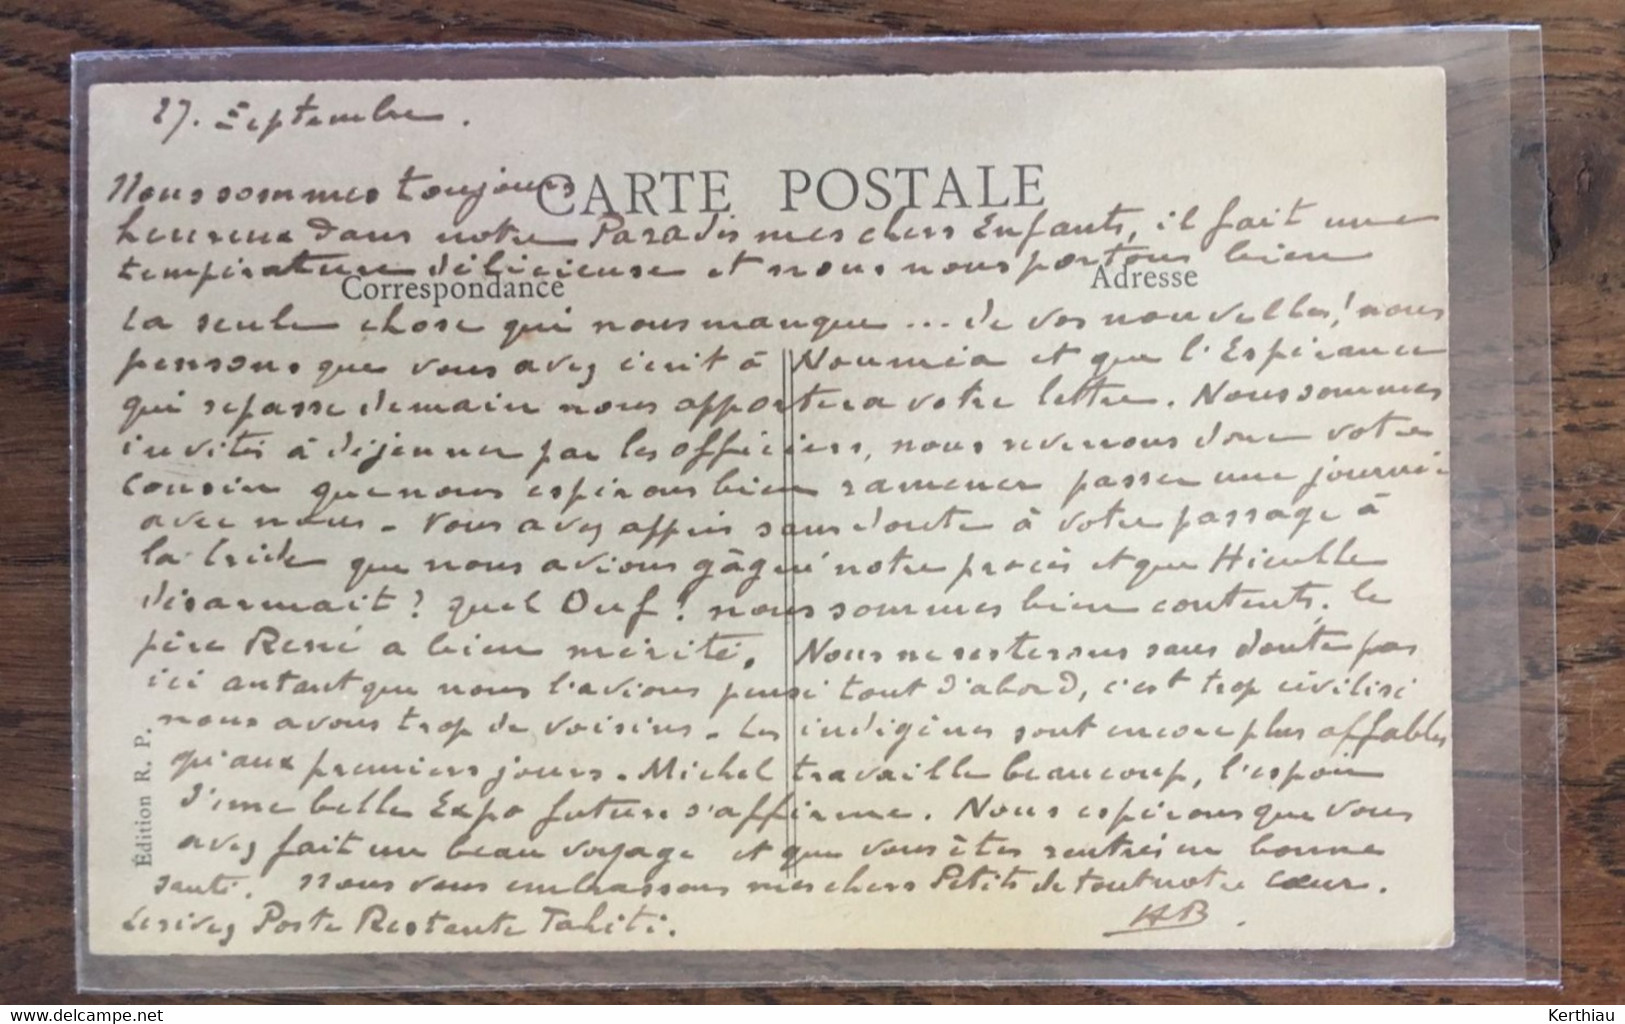 27. Septembre.
CARTE POSTALE
Nous sommes toujours
heureux dans notre Paradis mes chers Enfants, il fait une
température délicieuse et nous nous portons bien
Correspondance
Adresse
la seule chose qui nous manque ... de vos nouvelles! nous
pensons que vous avez écrit à Nouméa et que l'Espérance
qui repasse demain nous apportera votre lettre. Nous sommes
invités à déjeuner par les officiers, nous reverrons donc votre
cousin que nous espérons bien ramener passer une journée
avec nous. Vous avez appris sans doute à votre passage à
la que nous avions gâgné notre procès et que
désarmait? quel Ouf! nous sommes bien contents. le
père René a bien mérité. Nous ne resterons sans doute pas
ici autant que nous l'avions pensé tout d'abord, c'est trop civilisé
nous avons trop de voisins. Les indigènes sont encore plus affables
qu'aux premiers jours. Michel travaille beaucoup, l'espoir
d'une belle Expo future s'affirme. Nous espérons que vous
avez fait un beau voyage et que vous êtes rentrés en bonne
santé. Nous vous embrassons mes chers Petits de tout notre cœur.
Ecrivez Poste Restante Tahiti.
HB.
Édition R. P.
Kerthiau
www.delcampe.net